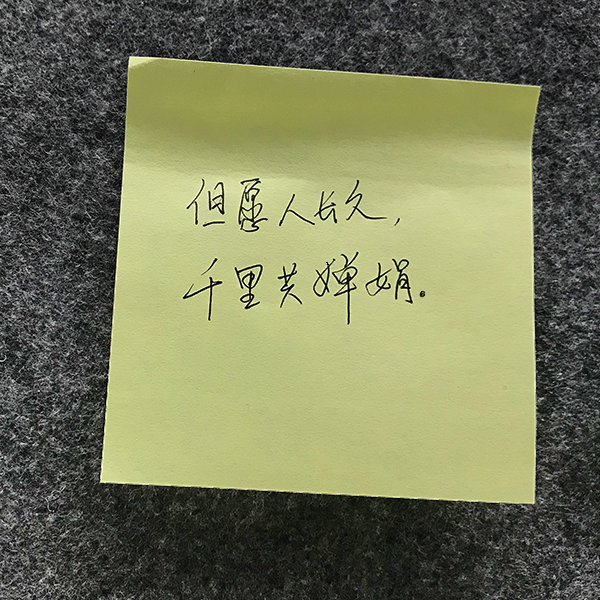 但愿人长久，
千里共婵娟。